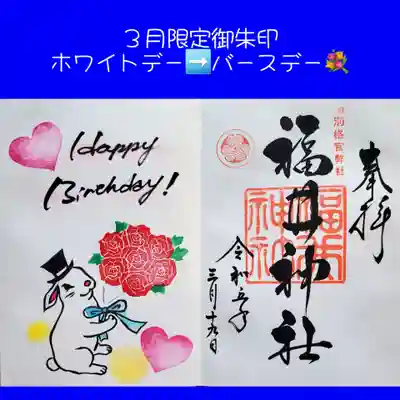 ３月限定御朱印
ホワイトデー➡バースデー💐
Happy
Birthday!
奉拝
旧別格官幣社
福井神社
福井
神社
令和五年
三月十九日